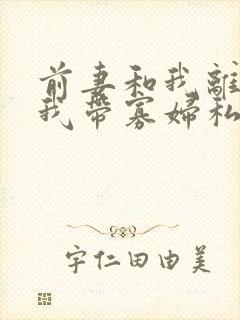 前妻和我離
我帶寡婦私
宇仁田由美